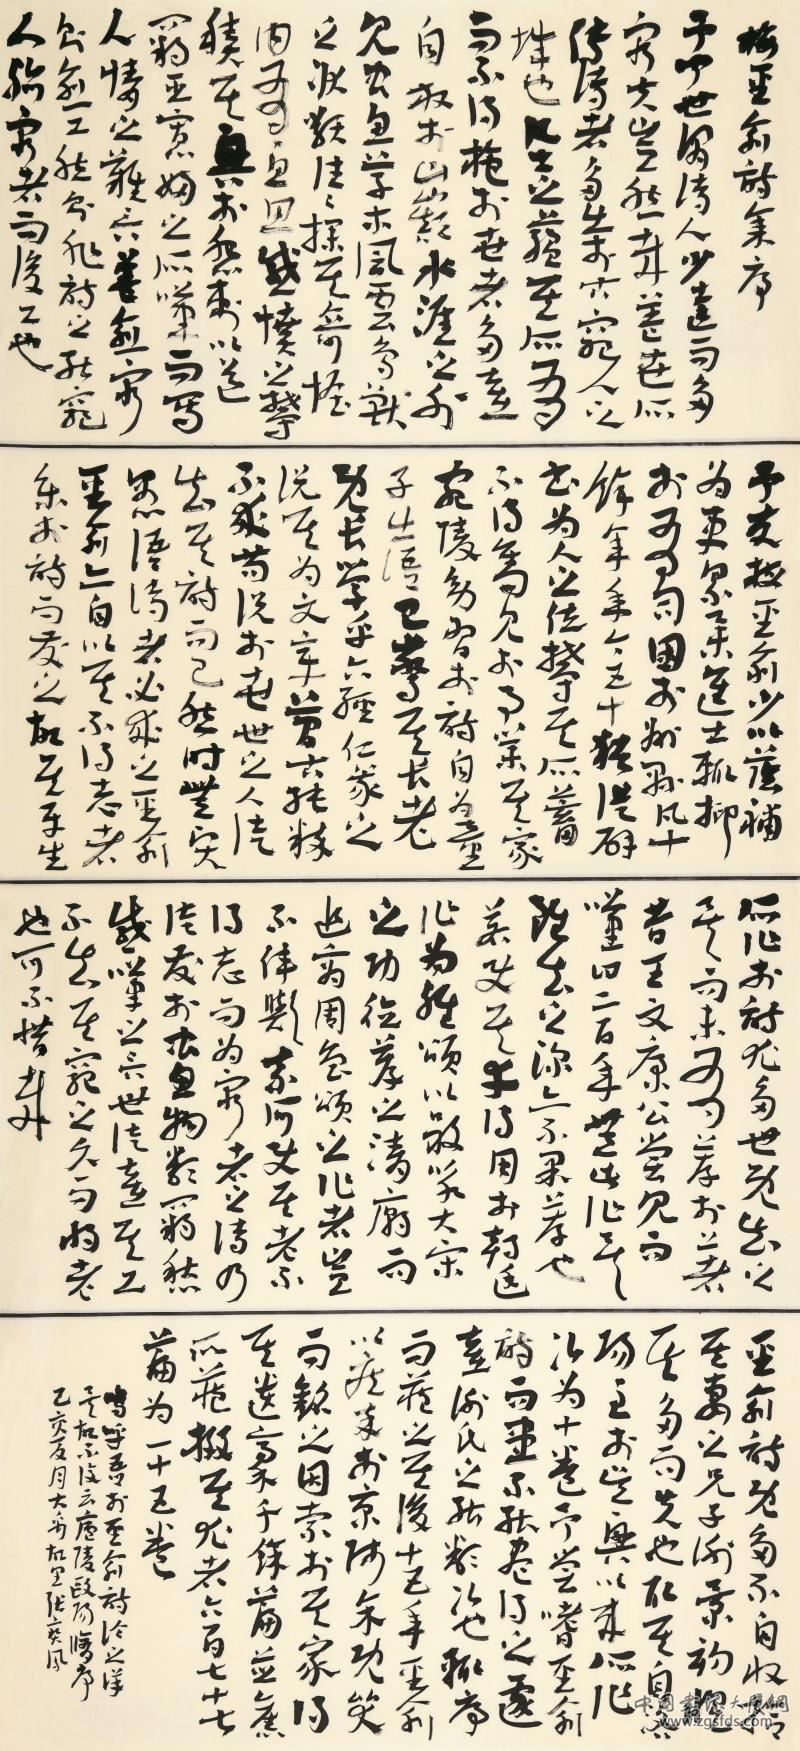 梅聖俞詩集序
予聞世謂詩人少達而多
窮夫豈然哉蓋世所
傳詩者多出於古窮人之
辭也凡士之蘊其所有
而不得施於世者多喜
自放於山巔水涯之外
見蟲魚草木風雲鳥獸
之狀類往往探其奇怪
內有憂思感憤之鬱
積其興於怨刺以道
羈臣寡婦之所嘆而寫
人情之難言蓋愈窮
則愈工然則非詩之能窮
人殆窮者而後工也
予友梅聖俞少以蔭補
為吏累舉進士輒抑
於有司困於州縣凡十
餘年年今五十猶從辟
書為人之佐鬱其所蓄
不得奮見於事業其家
宛陵幼習於詩自為童
子出語已驚其長老
既長學乎六經仁義之
說其為文章簡古純粹
不求苟說於世世之人徒
知其詩而已然時無賢
愚語詩者必求之聖俞
聖俞亦自以其不得志者
樂於詩而發之故其平生
所作於詩尤多世既知之
矣而未有薦於上者
昔王文康公嘗見而
嘆曰二百年無此作矣
雖知之深亦不果薦也
若使其幸得用於朝廷
作為雅頌以歌詠大宋
之功德薦之清廟而
追商周魯頌之作者豈
不偉歟奈何使其老不
得志而為窮者之詩乃
徒發於蟲魚物類羈愁
感嘆之言世徒喜其工
不知其窮之久而將老
也可不惜哉
聖俞詩既多不自收拾
其妻之兄子謝景初懼
其多而失也取其自洛
陽至於吳興以來所作
次為十卷予嘗嗜聖俞
詩而患不能盡得之遽
喜謝氏之能類次也輒序
而藏之其後十五年聖俞
以疾卒於京師余既哭
而銘之因索於其家得
其遺稿千餘篇並舊
所藏掇其尤者六百七十七
篇為一十五卷
嗚呼吾於聖俞詩論之詳
矣故不復云廬陵歐陽修序
乙亥夏月大故里張風
中国书法大展网
www.zgsfds.com